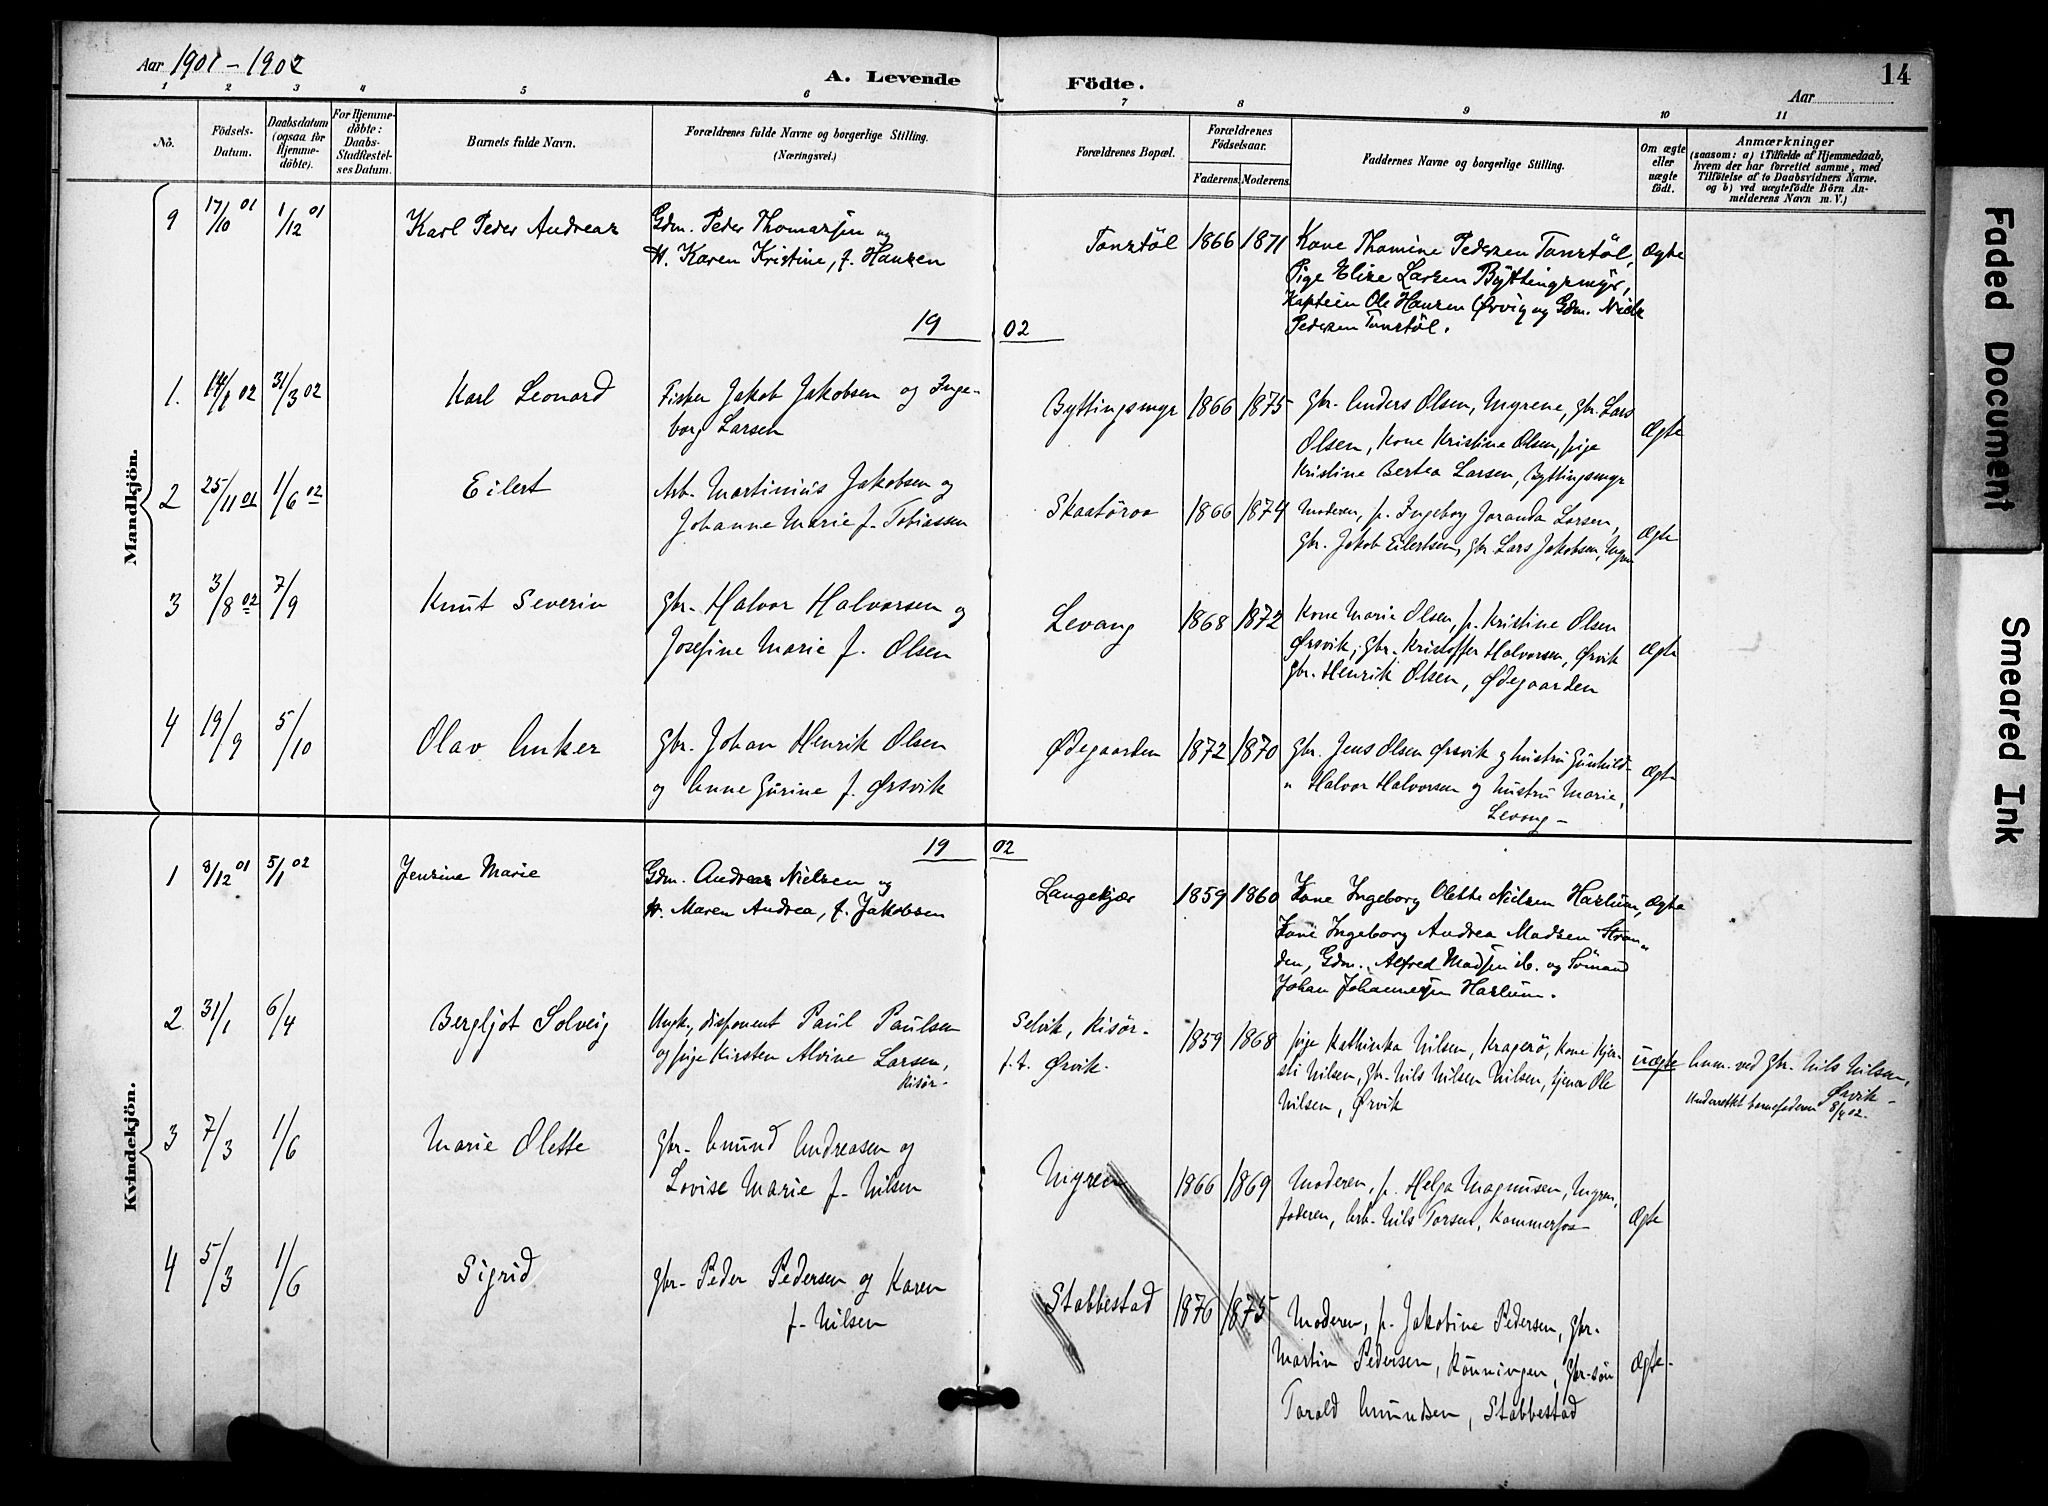 Aar 1901 - 1902
A. Levende Födte.
14
Aar
1 2 3 4 5 6 7 8 9 10 11
No.
Födsels-Datum.
Daabsdatum (ogsaa for Hjemmedöbte).
For Hjemmedöbte: Daabs-Stadfæstelses Datum.
Barnets fulde Navn.
Forældrenes fulde Navne og borgerlige Stilling. (Næringsvei.)
Forældrenes Bopæl.
Forældrenes Födselsaar.
Faderens. Moderens.
Faddernes Navne og borgerlige Stilling.
Om ægte eller uægte födt.
Anmærkninger
(saasom: a) i Tilfælde af Hjemmedaab, hvem der har forrettet samme, med Tilföielse af to Daabsvidners Navne. og b) ved uægtefödte Börn Anmelderens Navn m. V.)
Mandkjön.
9 17/10 01 1/12 01 Karl Peder Andreas
Gdm. Peder Thomassen og
H. Karen Kristine, f. Hansen
Tonstöl 1866 1871
Kone Thomine Pedersen Tonstöl,
Pige Elise Larsen Byttingsmyr,
Kaptein Ole Hansen Ørvig og Gdm. Niels
Pedersen Tonstöl.
Ægte
19 02
1. 14/1 02 31/3 02 Karl Leonard
Fisker Jakob Jakobsen og Inge-
borg Larsen
Byttingsmyr 1866 1875
Gbr. Anders Olsen, Myrene, Gbr. Lars
Olsen, Kone Kristine Olsen, pige
Kristine Bertea Larsen, Byttingsmyr
Ægte
2 25/11 01 1/6 02 Eilert
Arb. Martinius Jakobsen og
Johanne Marie f. Tobiassen
Skaatöroa 1866 1874
Moderen, p. Ingeborg Joranda Larsen,
Gbr. Jakob Eilertsen, Gbr Lars Jakobsen, Myren
Ægte
3 3/8 02 7/9 Knut Severin
Gbr. Halvor Halvorsen og
Josefine Marie f. Olsen
Levang 1868 1872
Kone Marie Olsen, p. Kristine Olsen
Ørsvik, Gbr. Kristoffer Halvorsen, Ørvik
Gbr. Henrik Olsen, Ødegaarden
Ægte
4 19/9 5/10 Olav Anker
Gbr. Johan Henrik Olsen
og Anne Gurine f. Ørsvik
Ødegaarden 1872 1870
Gbr. Jens Olsen Ørsvik og hustru Gunhild -
" Halvor Halvorsen og hustru Marie,
Levang -
Ægte
Kvindekjön.
19 02
1 8/12 01 5/1 02 Jensine Marie
Gdm. Andreas Nielsen og
H. Maren Andrea, f. Jakobsen
Langekjær 1859 1860
Kone Ingeborg Olette Nielsen Haslum,
Kone Ingeborg Andrea Madsen Stran-
den, Gdm. Alfred Madsen ib. og Sömand
Johan Johannessen Haslum.
Ægte
2 31/1 6/4 Bergljot Solveig
Ungk, disponent Paul Paulsen
og pige Kirsten Alvine Larsen,
Risör.
Selvik, Risör.
f. t. Ørvik.
1859 1868
pige Kathinka Nilsen, Kragerö, Kone Kjer-
sti Nilsen, Gbr. Nils Nilsen Nilsen, tjener Ole
Nilsen, Ørvik
uægte
Anm. ved Gbr. Nils Nilsen,
Ørvik -
Underrettet barnefaderen 8/4 02.
3 7/3 1/6 Marie Olette
Gbr. Amund Andreasen og
Lovise Marie f. Nilsen
Myren 1866 1869
Moderen, p. Helga Magnusen, Myren,
faderen, Arb. Nils Torsen, Kammerfos
Ægte
4 5/3 1/6 Sigrid
Gbr. Peder Pedersen og Karen
f. Nilsen
Stabbestad 1876 1875
Moderen, p. Jakobine Pedersen, Gbr.
Martin Pedersen, Rönningen, Gbr-sön
Torald Amundsen, Stabbestad
Ægte.
Faded Document
Smeared Ink